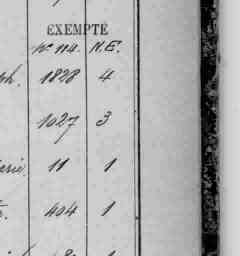 EXEMPTÉ
No. 114. N.E.
ph. 1828 4
1027 3
arie. 11 1
404 1